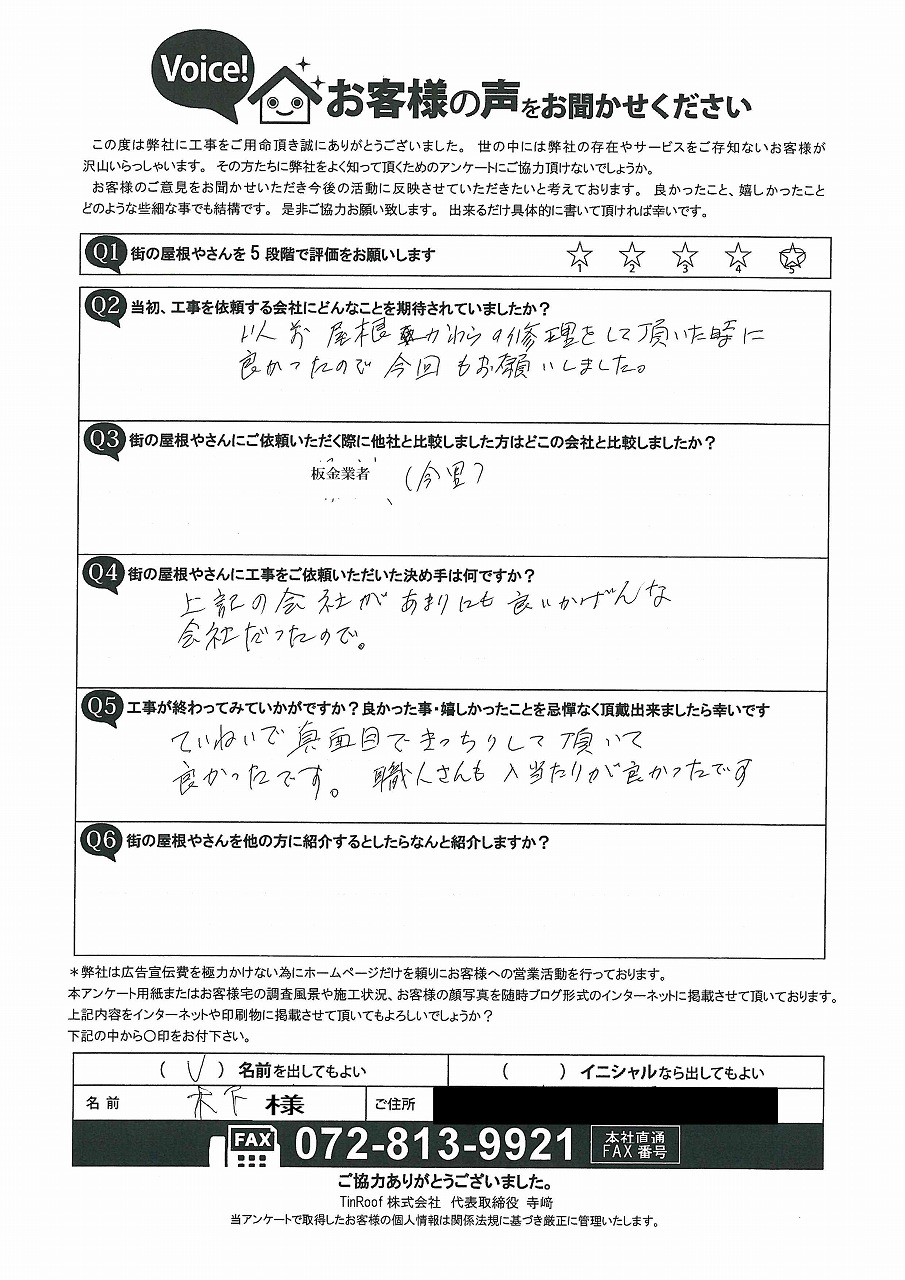 Voice!
お客様の声をお聞かせください
この度は弊社に工事をご用命頂き誠にありがとうございました。 世の中には弊社の存在やサービスをご存知ないお客様が
沢山いらっしゃいます。 その方たちに弊社をよく知って頂くためのアンケートにご協力頂けないでしょうか。
お客様のご意見をお聞かせいただき今後の活動に反映させていただきたいと考えております。 良かったこと、嬉しかったこと
どのような些細な事でも結構です。 是非ご協力お願い致します。 出来るだけ具体的に書いて頂ければ幸いです。
Q1 街の屋根やさんを 5 段階で評価をお願いします ☆1 ☆2 ☆3 ☆4 ☆5
Q2 当初、工事を依頼する会社にどんなことを期待されていましたか?
以前 屋根 かわらの修理をして頂いた時に
良かったので 今回もお願いしました。
Q3 街の屋根やさんにご依頼いただく際に他社と比較しました方はどこの会社と比較しましたか?
板金業者 (今里)
Q4 街の屋根やさんに工事をご依頼いただいた決め手は何ですか?
上記の会社があまりにも良いかげんな
会社だったので。
Q5 工事が終わってみていかがですか?良かった事・嬉しかったことを忌憚なく頂戴出来ましたら幸いです
ていねいで真面目できっちりして頂いて
良かったです。 職人さんも人当たりが良かったです
Q6 街の屋根やさんを他の方に紹介するとしたらなんと紹介しますか?
*弊社は広告宣伝費を極力かけない為にホームページだけを頼りにお客様への営業活動を行っております。
本アンケート用紙またはお客様宅の調査風景や施工状況、お客様の顔写真を随時ブログ形式のインターネットに掲載させて頂いております。
上記内容をインターネットや印刷物に掲載させて頂いてもよろしいでしょうか?
下記の中から〇印をお付下さい。
( V ) 名前を出してもよい ( ) イニシャルなら出してもよい
名前 木下 様 ご住所
FAX 072-813-9921 本社直通
FAX番号
ご協力ありがとうございました。
TinRoof株式会社 代表取締役 寺﨑
当アンケートで取得したお客様の個人情報は関係法規に基づき厳正に管理いたします。